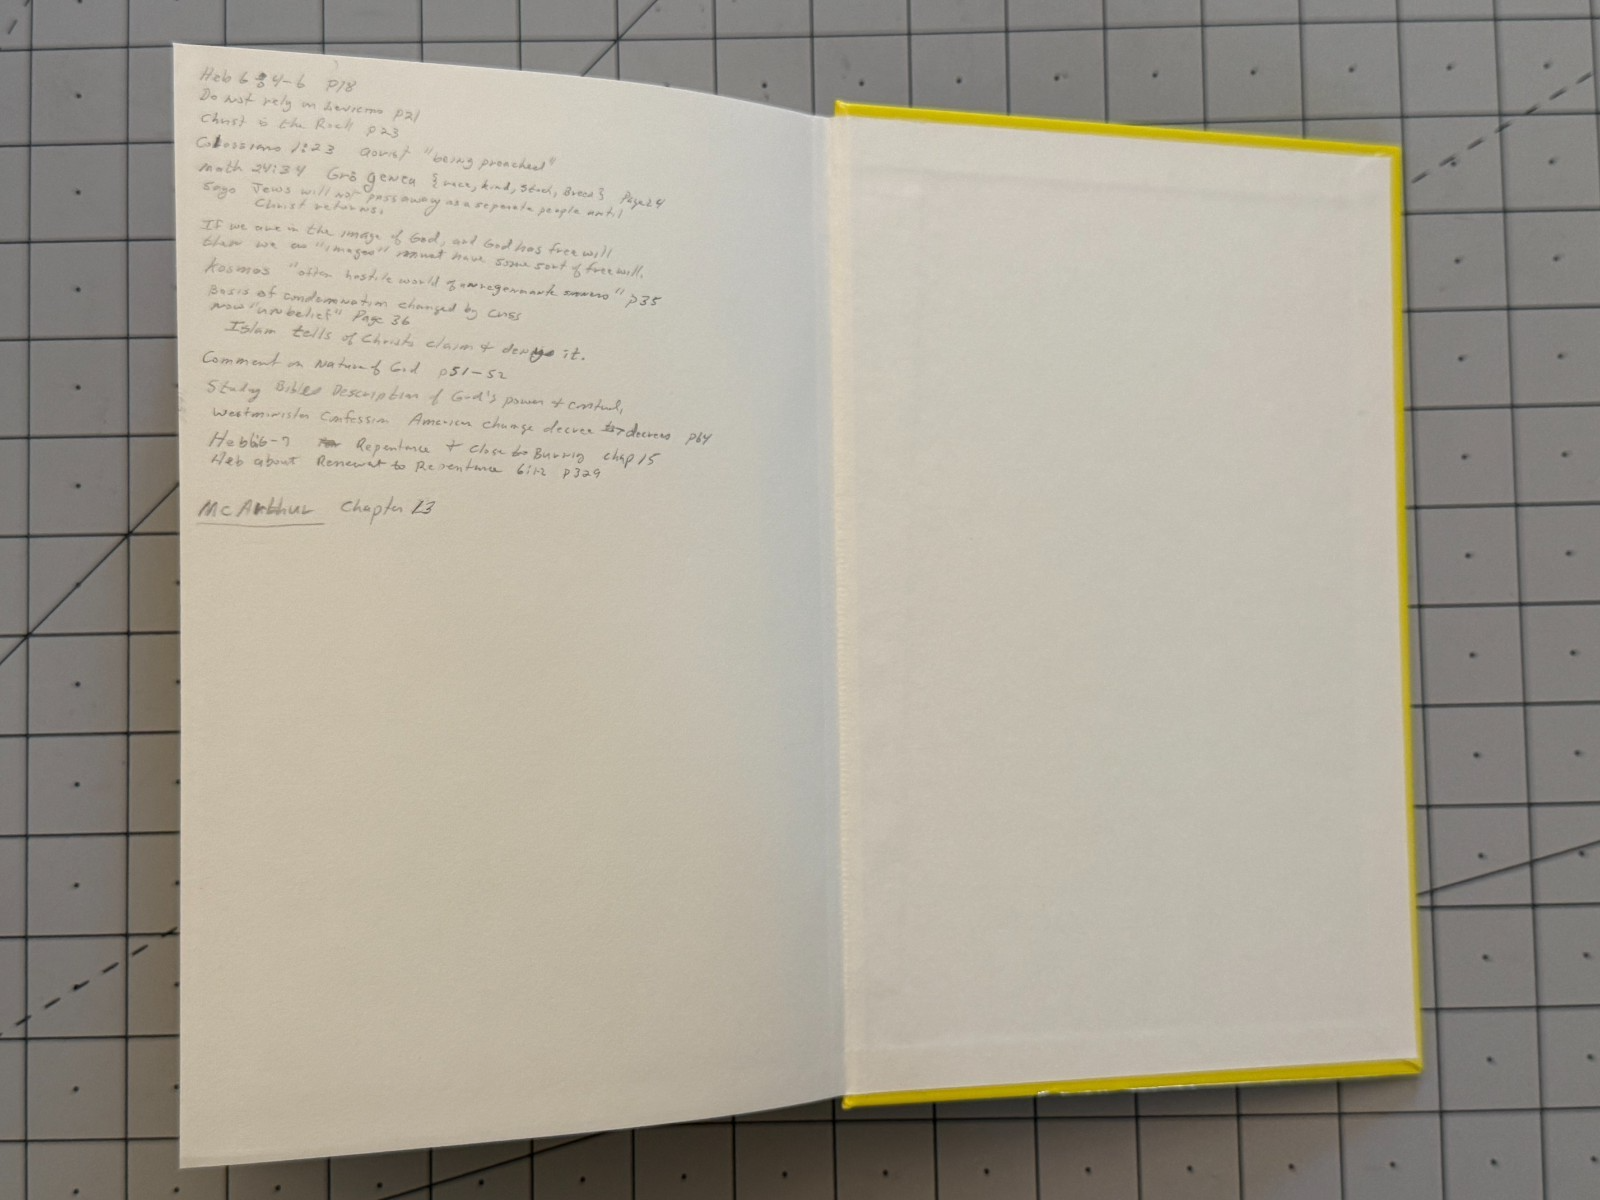 Heb 6:4-6 p18
Do not rely on p21
Christ is the Rock p23
Colossians 1:23 aorist "being preached"
math 24:34 Gr genea {race, kind, Stock, Breed} Page 24
Says Jews will not pass away as a separate people until
Christ returns.
If we are in the image of God, and God has free will
then we as "images" must have some sort of free will.
Kosmos "often hostile world of unregenerate" p35
Basis of condemnation changed by cross
now "unbelief" Page 36
Islam tells of Christs claim + denys it.
Comment on Nature of God p51-52
Study Bible Description of God's power + control,
Westminister Confession American change decree to decrees p64
Heb 6-7 Repentance + Close to Burning chap 15
Heb about Renewal to Repentance p329
McArthur Chapter 13